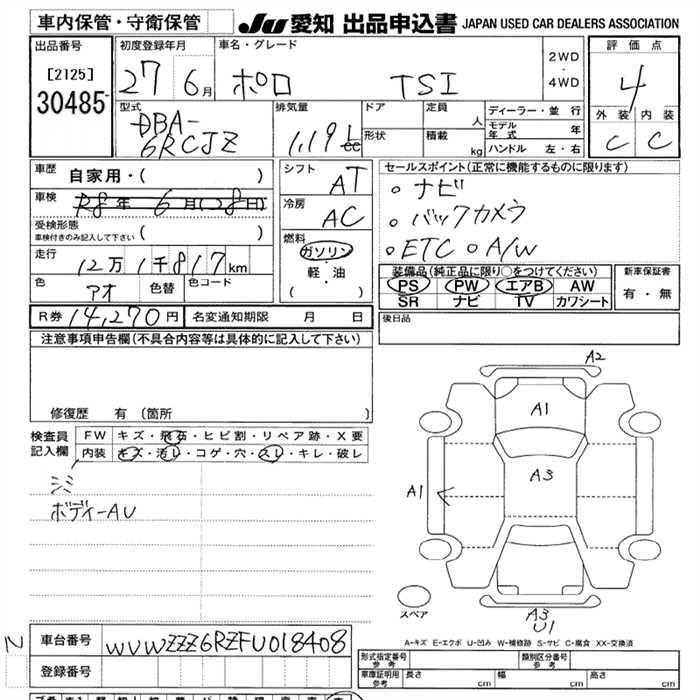 車内保管・守衛保管
JU 愛知 出品申込書 JAPAN USED CAR DEALERS ASSOCIATION
出品番号
[2125]
30485
初度登録年月
27 6月
車名・グレード
ポロ TSI
2WD
・
4WD
評価点
4
外装 内装
C C
型式
DBA-
6RCJZ
排気量
1.19 L
cc
ドア
形状
定員
人
積載
kg
ディーラー・並行
モデル年式 年
ハンドル 左・右
車歴
自家用・( )
車検
R8年 6月(28日)
受検形態
車検付きのみ記入して下さい ( )
走行
12万1千817km
色
アオ
色替
色コード
シフト
AT
冷房
AC
燃料
ガソリン
・
軽・油
( )
セールスポイント(正常に機能するものに限ります)
○ナビ
○バックカメラ
○ETC ○A/W
装備品(純正品に限り○をつけてください)
PS PW エアB AW
SR ナビ TV カワシート
新車保証書
有・無
R券 14,270円
名変通知期限 月 日
後日品
注意事項申告欄(不具合内容等は具体的に記入して下さい)
修復歴 有(箇所 )
検査員
記入欄
FW キズ・飛石・ヒビ割・リペア跡・X要
内装 キズ・汚レ・コゲ・穴・スレ・キレ・破レ
ボディーAU
A2
A1
A3
A1
A3
U1
スペア
A-キズ E-エクボ U-凹み W-補修跡 S-サビ C-腐食 XX-交換済
N
車台番号 WVWZZZ6RZFU018408
登録番号
型式指定番号
参考
類別区分番号
参考
車庫証明用
参考
長さ cm
幅 cm
高さ cm